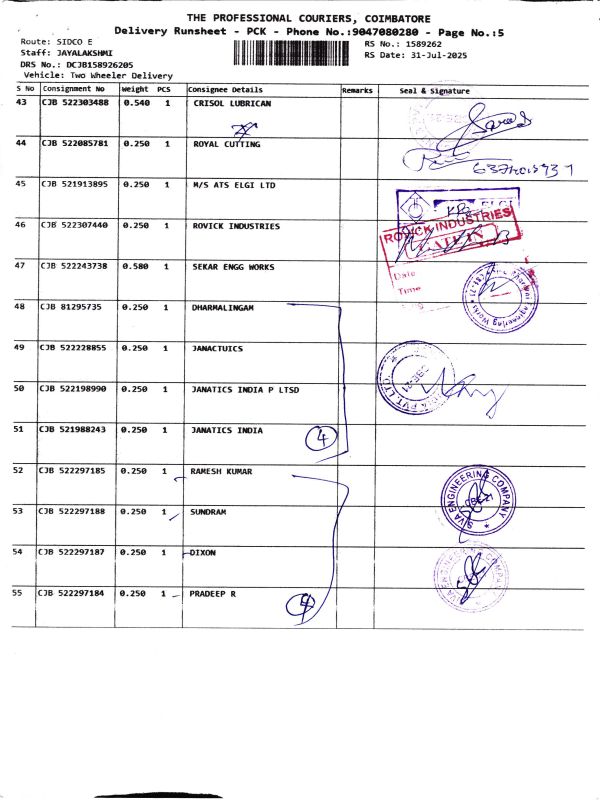 THE PROFESSIONAL COURIERS, COIMBATORE
Delivery Runsheet - PCK - Phone No.:9047080280 - Page No.:5
Route: SIDCO E
RS No.: 1589262
Staff: JAYALAKSHMI
RS Date: 31-Jul-2025
DRS No.: DCJB158926205
Vehicle: Two Wheeler Delivery
S No Consignment No Weight PCS Consignee Details Remarks Seal & Signature
43 CJB 522303488 0.540 1 CRISOL LUBRICAN
44 CJB 522085781 0.250 1 ROYAL CUTTING
45 CJB 521913895 0.250 1 M/S ATS ELGI LTD
ELGI
46 CJB 522307440 0.250 1 ROVICK INDUSTRIES
ROVICK INDUSTRIES
47 CJB 522243738 0.580 1 SEKAR ENGG WORKS
Date
Time
Engineering Works
48 CJB 81295735 0.250 1 DHARMALINGAM
49 CJB 522228855 0.250 1 JANACTUICS
CBE-21
50 CJB 522198990 0.250 1 JANATICS INDIA P LTSD
51 CJB 521988243 0.250 1 JANATICS INDIA
4
52 CJB 522297185 0.250 1 RAMESH KUMAR
SIVA ENGINEERING COMPANY
CBE-21
53 CJB 522297188 0.250 1 SUNDRAM
54 CJB 522297187 0.250 1 DIXON
SIVA ENGINEERING COMPANY
55 CJB 522297184 0.250 1 PRADEEP R
4